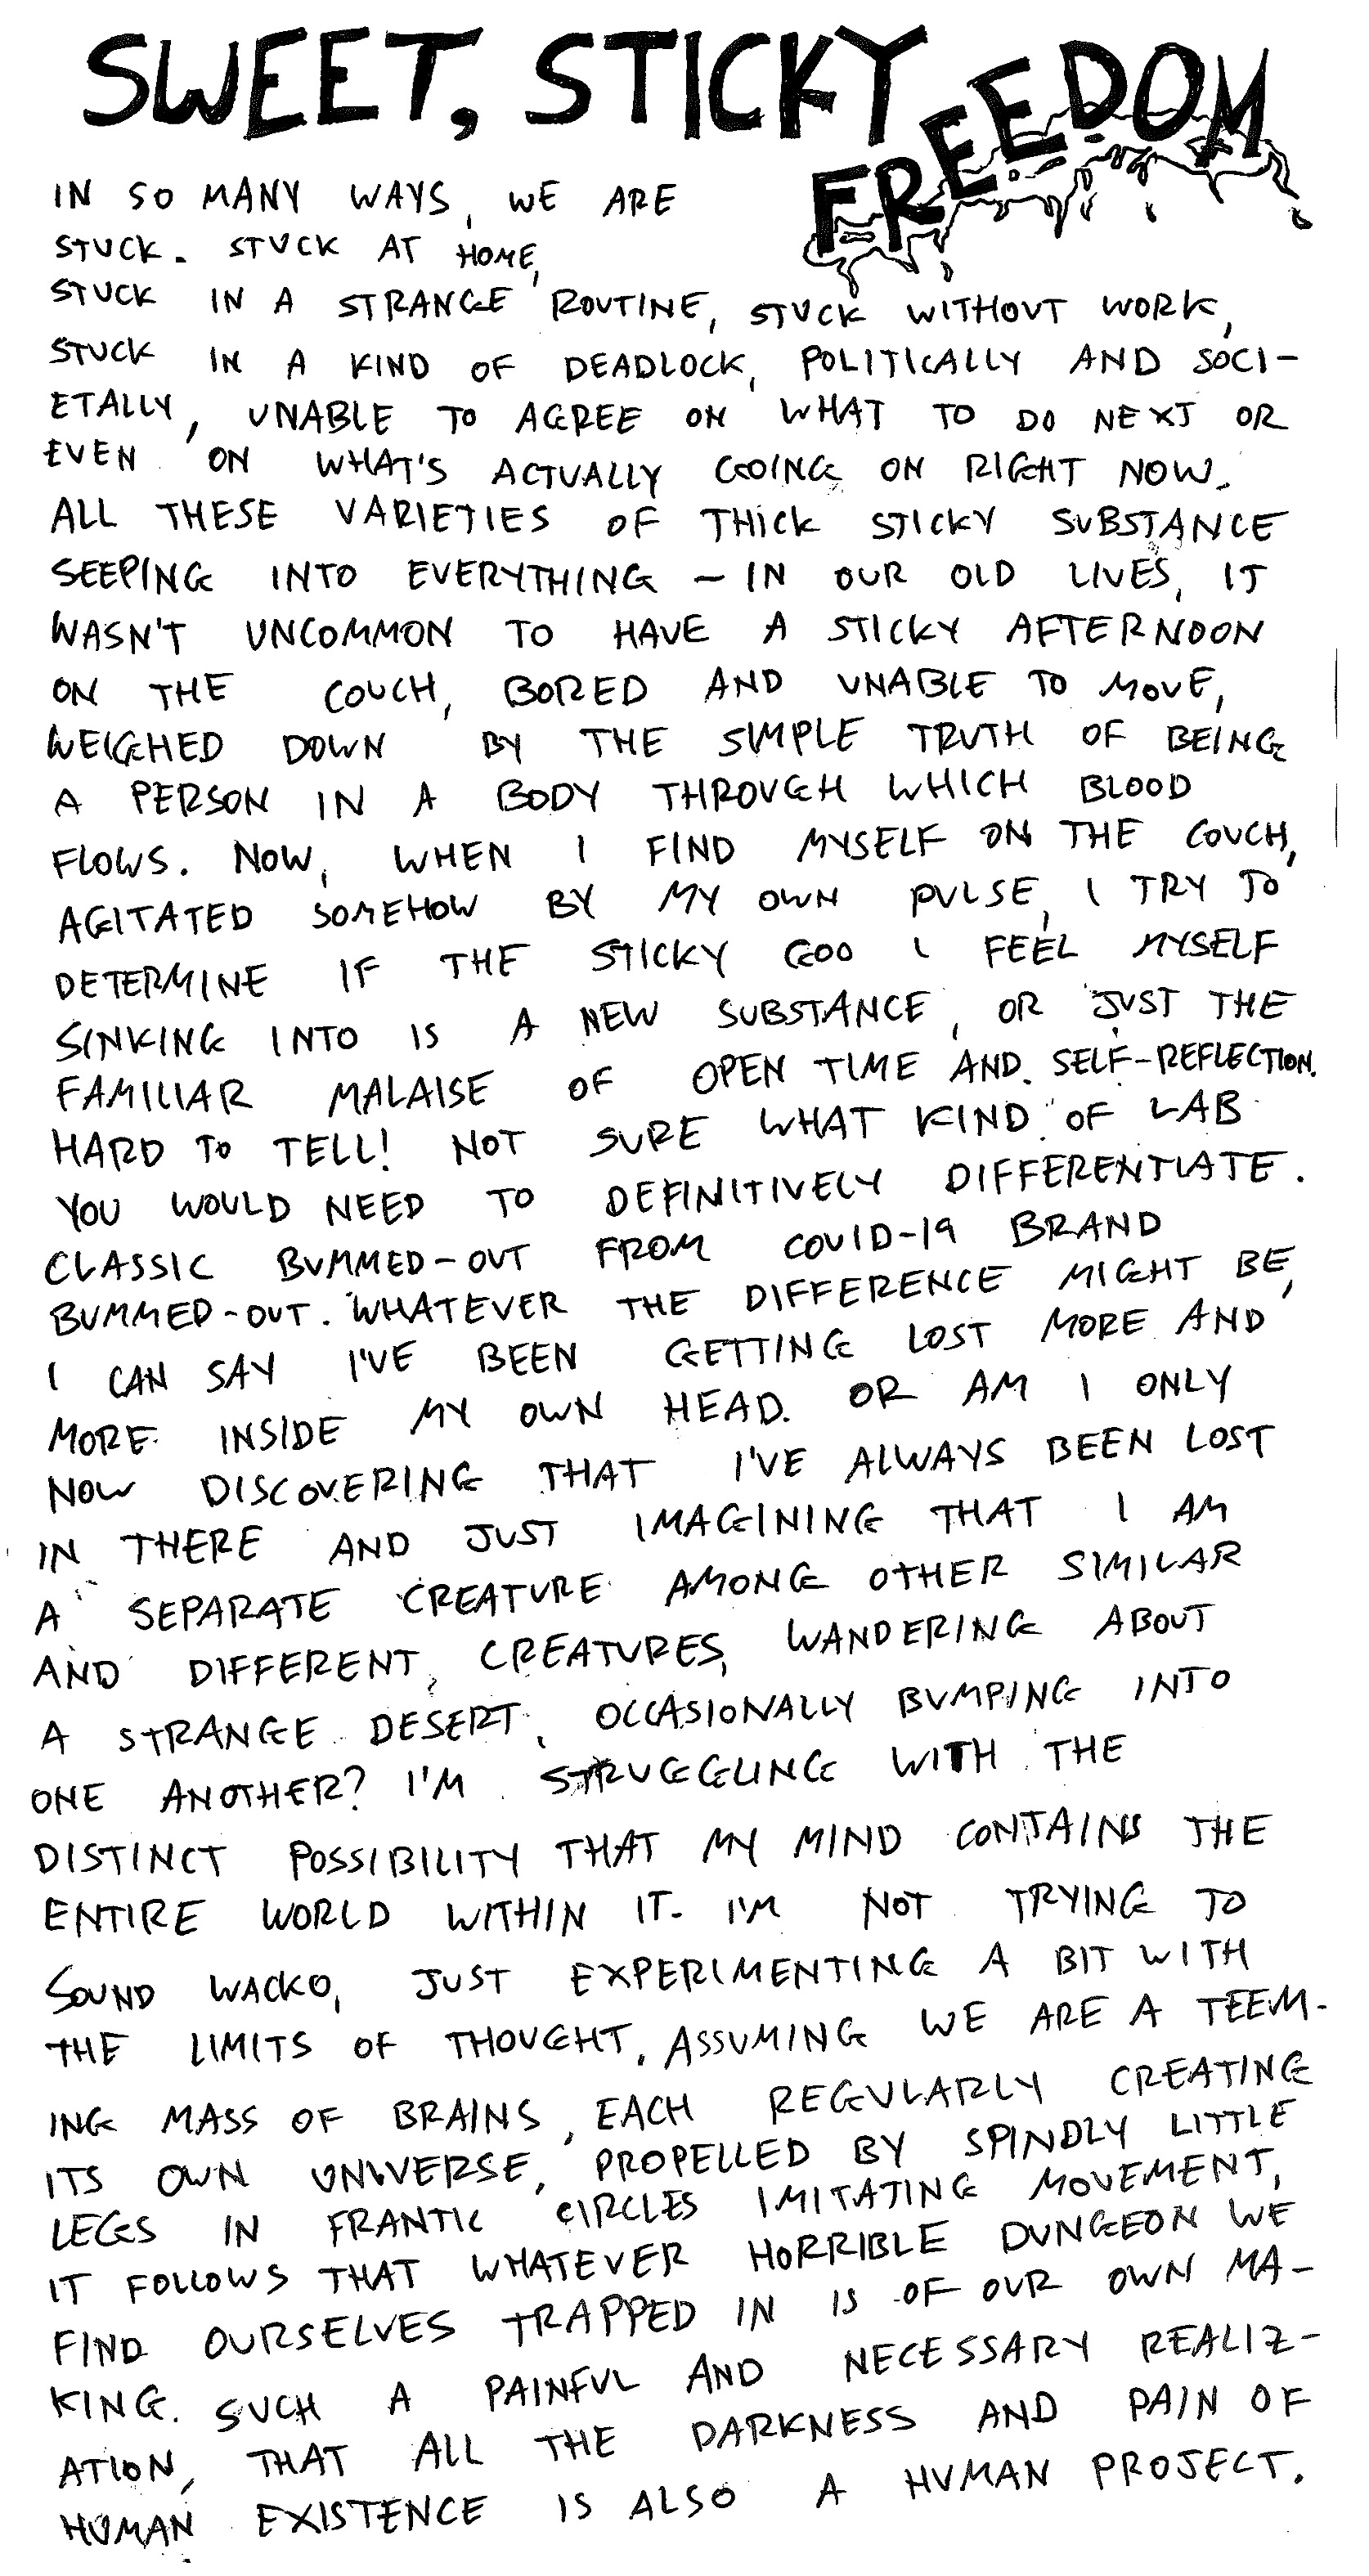 SWEET, STICKY FREEDOM
IN SO MANY WAYS, WE ARE
STUCK. STUCK AT HOME,
STUCK IN A STRANGE ROUTINE, STUCK WITHOUT WORK,
STUCK IN A KIND OF DEADLOCK, POLITICALLY AND SOCI-
ETALLY, UNABLE TO AGREE ON WHAT TO DO NEXT OR
EVEN ON WHAT'S ACTUALLY GOING ON RIGHT NOW.
ALL THESE VARIETIES OF THICK STICKY SUBSTANCE
SEEPING INTO EVERYTHING – IN OUR OLD LIVES, IT
WASN'T UNCOMMON TO HAVE A STICKY AFTERNOON
ON THE COUCH, BORED AND UNABLE TO MOVE,
WEIGHED DOWN BY THE SIMPLE TRUTH OF BEING
A PERSON IN A BODY THROUGH WHICH BLOOD
FLOWS. NOW, WHEN I FIND MYSELF ON THE COUCH,
AGITATED SOMEHOW BY MY OWN PULSE, I TRY TO
DETERMINE IF THE STICKY GOO I FEEL MYSELF
SINKING INTO IS A NEW SUBSTANCE, OR JUST THE
FAMILIAR MALAISE OF OPEN TIME AND SELF-REFLECTION.
HARD TO TELL! NOT SURE WHAT KIND OF LAB
YOU WOULD NEED TO DEFINITIVELY DIFFERENTIATE.
CLASSIC BUMMED-OUT FROM COVID-19 BRAND
BUMMED-OUT. WHATEVER THE DIFFERENCE MIGHT BE,
I CAN SAY I'VE BEEN GETTING LOST MORE AND
MORE INSIDE MY OWN HEAD. OR AM I ONLY
NOW DISCOVERING THAT I'VE ALWAYS BEEN LOST
IN THERE AND JUST IMAGINING THAT I AM
A SEPARATE CREATURE AMONG OTHER SIMILAR
AND DIFFERENT CREATURES, WANDERING ABOUT
A STRANGE DESERT, OCCASIONALLY BUMPING INTO
ONE ANOTHER? I'M STRUGGLING WITH THE
DISTINCT POSSIBILITY THAT MY MIND CONTAINS THE
ENTIRE WORLD WITHIN IT. I'M NOT TRYING TO
SOUND WACKO, JUST EXPERIMENTING A BIT WITH
THE LIMITS OF THOUGHT. ASSUMING WE ARE A TEEM-
ING MASS OF BRAINS, EACH REGULARLY CREATING
ITS OWN UNIVERSE, PROPELLED BY SPINDLY LITTLE
LEGS IN FRANTIC CIRCLES IMITATING MOVEMENT,
IT FOLLOWS THAT WHATEVER HORRIBLE DUNGEON WE
FIND OURSELVES TRAPPED IN IS OF OUR OWN MA-
KING. SUCH A PAINFUL AND NECESSARY REALIZ-
ATION, THAT ALL THE DARKNESS AND PAIN OF
HUMAN EXISTENCE IS ALSO A HUMAN PROJECT.